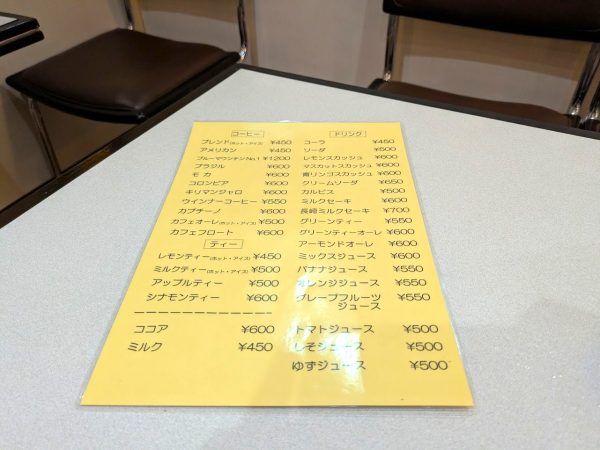 コーヒー
ブレンド(ホット・アイス) ¥450
アメリカン ¥450
ブルーマウンテンNo.1 ¥1200
ブラジル ¥600
モカ ¥600
コロンビア ¥600
キリマンジャロ ¥600
ウインナーコーヒー ¥550
カプチーノ ¥600
カフェオーレ(ホット・アイス) ¥500
カフェフロート ¥600
ティー
レモンティー(ホット・アイス) ¥450
ミルクティー(ホット・アイス) ¥500
アップルティー ¥500
シナモンティー ¥600
ココア ¥600
ミルク ¥450
ドリンク
コーラ ¥450
ソーダ ¥500
レモンスカッシュ ¥600
マスカットスカッシュ ¥600
青リンゴスカッシュ ¥600
クリームソーダ ¥650
カルピス ¥500
ミルクセーキ ¥600
長崎ミルクセーキ ¥700
グリーンティー ¥550
グリーンティーオーレ ¥600
アーモンドオーレ ¥600
ミックスジュース ¥600
バナナジュース ¥550
オレンジジュース ¥550
グレープフルーツ ¥550
ジュース
トマトジュース ¥500
しそジュース ¥500
ゆずジュース ¥500